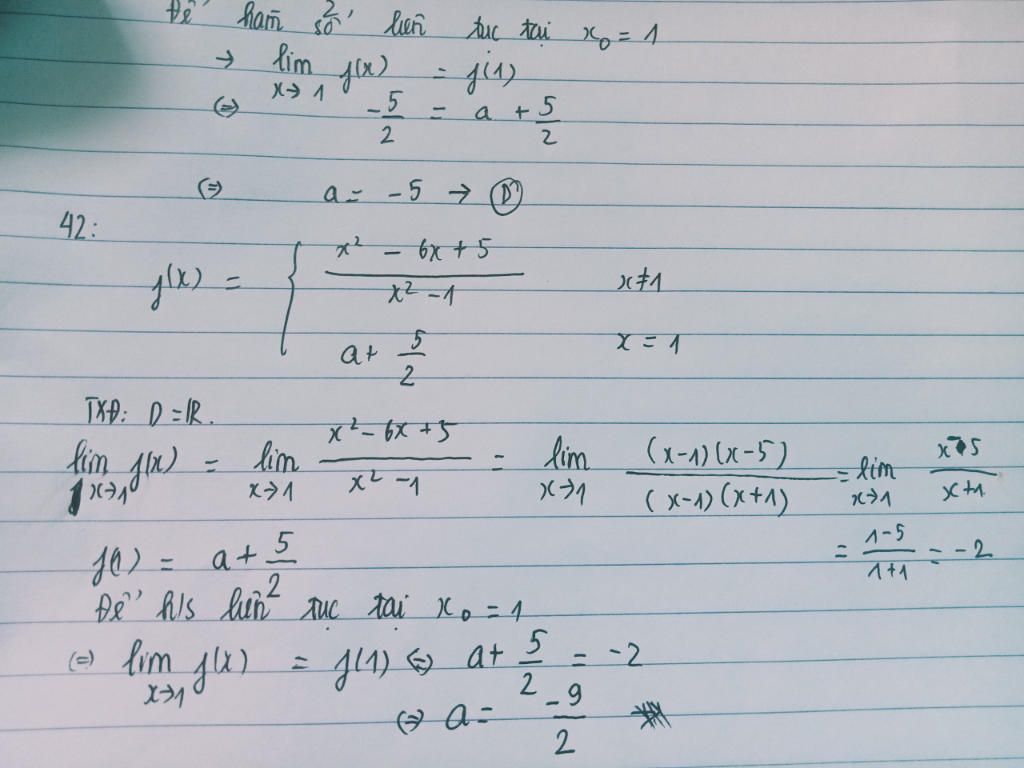 Để hàm số liên tục tại x₀ = 1
→ lim_{x→1} f(x) = f(1)
⇔ -5/2 = a + 5/2
⇔ a = -5 → Ⓓ
42:
f(x) = { (x² - 6x + 5)/(x² - 1) x ≠ 1
a + 5/2 x = 1
TXĐ: D = ℝ.
lim_{x→1} f(x) = lim_{x→1} (x² - 6x + 5)/(x² - 1) = lim_{x→1} ((x-1)(x-5))/((x-1)(x+1)) = lim_{x→1} (x-5)/(x+1)
= (1-5)/(1+1) = -2
f(1) = a + 5/2
Để h/s liên tục tại x₀ = 1
⇔ lim_{x→1} f(x) = f(1) ⇔ a + 5/2 = -2
⇔ a = -9/2